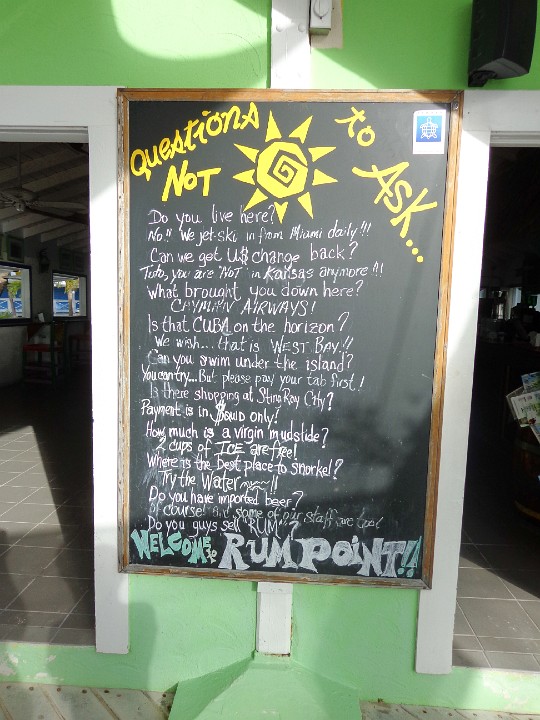 Questions to
Not Ask...
Do you live here?
No!! We jet-ski in from Miami daily!!
Can we get U$ change back?
Toto, you are "NOT" in Kansas anymore!!
What brought you down here?
CAYMAN AIRWAYS!
Is that CUBA on the horizon?
We wish... that is WEST BAY!!
Can you swim under the island?
You can try... But please pay your tab first!
Is there shopping at Sting Ray City?
Payment is in $quid only!
How much is a virgin mudslide?
2 cups of ICE are free!
Where is the best place to snorkel?
Try the Water!!
Do you have imported beer?
Of course! and some of our staff are too!
Do you guys sell "RUM"?
WELCOME to RUM POINT!!